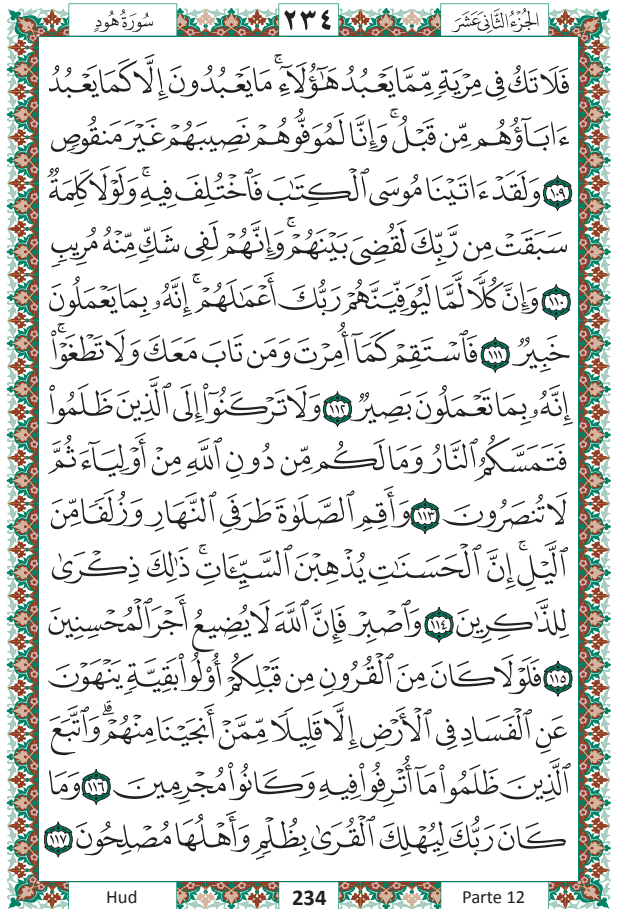 سُورَةُ هُودٍ ٢٣٤ الجُزْءُ الثَّانِي عَشَرَ
فَلَا تَكُ فِي مِرْيَةٍ مِّمَّا يَعْبُدُ هَٰٓؤُلَآءِۚ مَا يَعْبُدُونَ إِلَّا كَمَا يَعْبُدُ
ءَابَآؤُهُم مِّن قَبْلُۚ وَإِنَّا لَمُوَفُّوهُمْ نَصِيبَهُمْ غَيْرَ مَنقُوصٍ
١٠٩ وَلَقَدْ ءَاتَيْنَا مُوسَى ٱلْكِتَٰبَ فَٱخْتُلِفَ فِيهِۚ وَلَوْلَا كَلِمَةٌ
سَبَقَتْ مِن رَّبِّكَ لَقُضِيَ بَيْنَهُمْۚ وَإِنَّهُمْ لَفِي شَكٍّ مِّنْهُ مُرِيبٍ
١١٠ وَإِنَّ كُلًّا لَّمَّا لَيُوَفِّيَنَّهُمْ رَبُّكَ أَعْمَٰلَهُمْۚ إِنَّهُۥ بِمَا يَعْمَلُونَ
خَبِيرٌ ١١١ فَٱسْتَقِمْ كَمَآ أُمِرْتَ وَمَن تَابَ مَعَكَ وَلَا تَطْغَوْا۟ۚ
إِنَّهُۥ بِمَا تَعْمَلُونَ بَصِيرٌ ١١٢ وَلَا تَرْكَنُوٓا۟ إِلَى ٱلَّذِينَ ظَلَمُوا۟
فَتَمَسَّكُمُ ٱلنَّارُ وَمَا لَكُم مِّن دُونِ ٱللَّهِ مِنْ أَوْلِيَآءَ ثُمَّ
لَا تُنصَرُونَ ١١٣ وَأَقِمِ ٱلصَّلَوٰةَ طَرَفَيِ ٱلنَّهَارِ وَزُلَفًا مِّنَ
ٱلَّيْلِۚ إِنَّ ٱلْحَسَنَٰتِ يُذْهِبْنَ ٱلسَّيِّـَٔاتِۚ ذَٰلِكَ ذِكْرَىٰ
لِلذَّٰكِرِينَ ١١٤ وَٱصْبِرْ فَإِنَّ ٱللَّهَ لَا يُضِيعُ أَجْرَ ٱلْمُحْسِنِينَ
١١٥ فَلَوْلَا كَانَ مِنَ ٱلْقُرُونِ مِن قَبْلِكُمْ أُو۟لُوا۟ بَقِيَّةٍ يَنْهَوْنَ
عَنِ ٱلْفَسَادِ فِي ٱلْأَرْضِ إِلَّا قَلِيلًا مِّمَّنْ أَنجَيْنَا مِنْهُمْۗ وَٱتَّبَعَ
ٱلَّذِينَ ظَلَمُوا۟ مَآ أُتْرِفُوا۟ فِيهِ وَكَانُوا۟ مُجْرِمِينَ ١١٦ وَمَا
كَانَ رَبُّكَ لِيُهْلِكَ ٱلْقُرَىٰ بِظُلْمٍ وَأَهْلُهَا مُصْلِحُونَ ١١٧
Hud 234 Parte 12